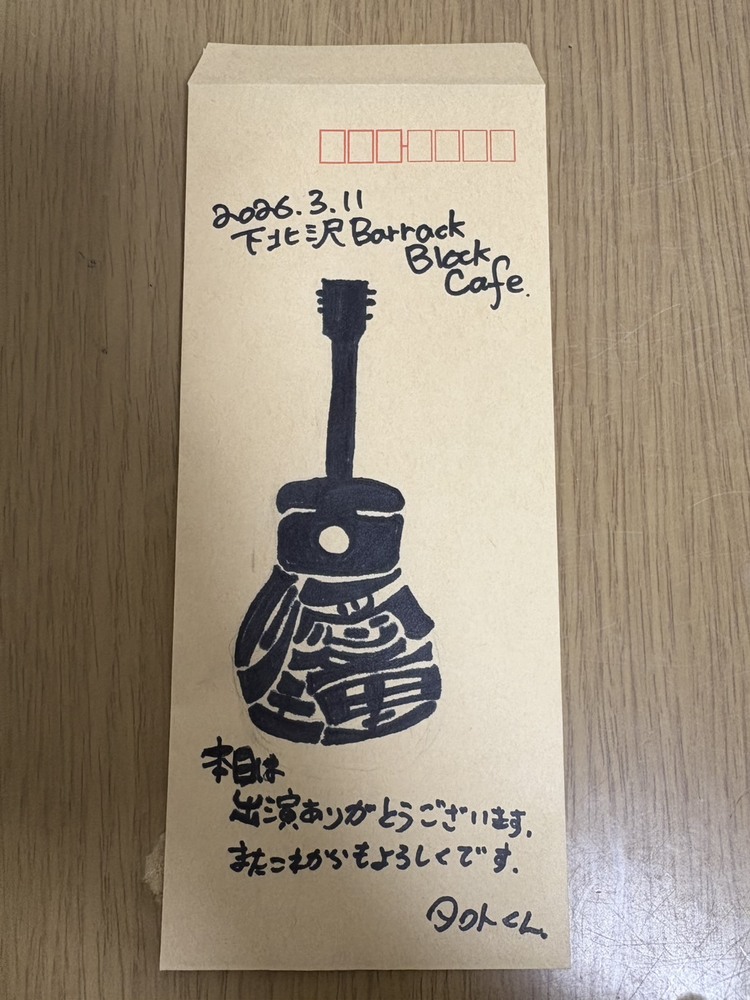 2026.3.11
下北沢Barrack
Block
Cafe.
本日は
出演ありがとうございます。
またこれからもよろしくです。
タクトくん